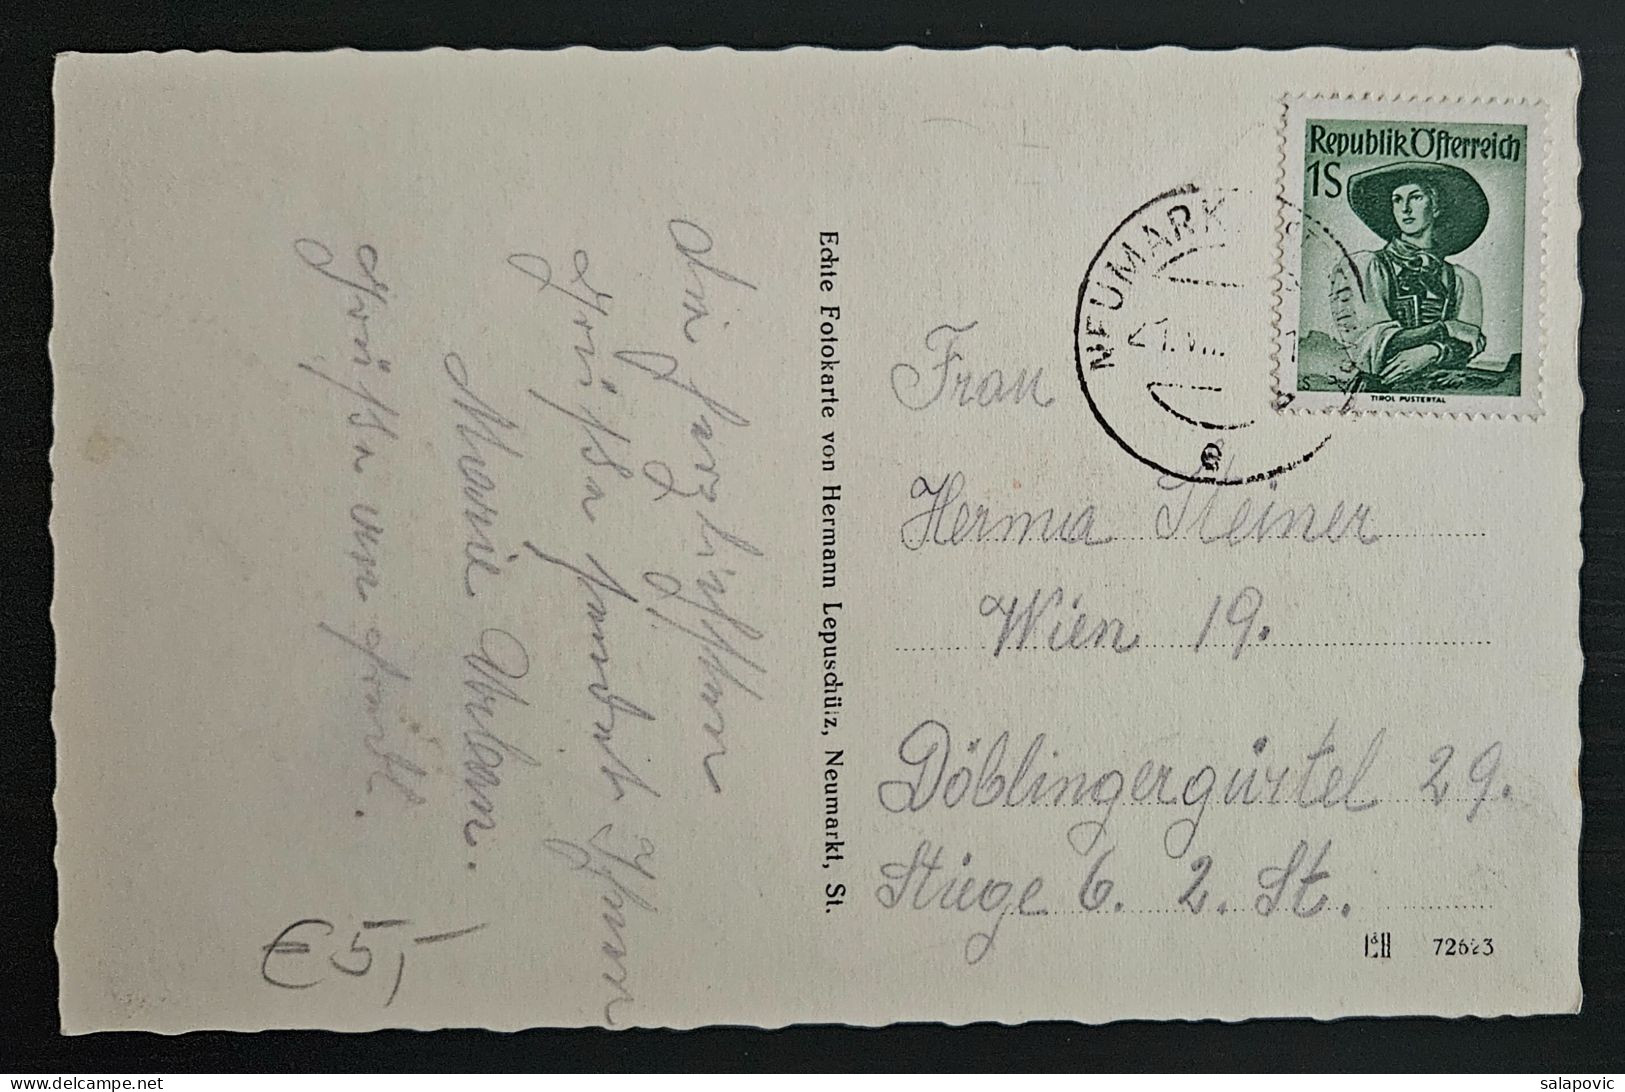 Republik Österreich
1S
TIROL PUSTERTAL
NEUMARKT
Echte Fotokarte von Hermann Lepuschütz, Neumarkt, St.
Frau
Herma Steiner
Wien 19.
Döblingergürtel 29.
Stiege 6. 2. St.
Die herzlichsten
Grüße sendet Ihnen
Marie
Grüße an
€ 5,-
salapovic